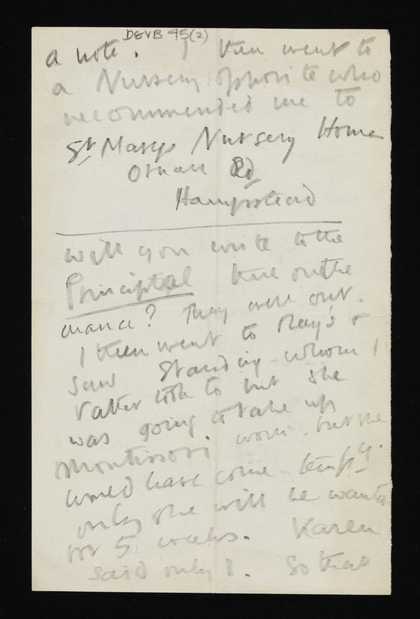 DEVB 45(2)
a note. I then went to
a Nursery opposite who
recommended me to
St Marys Nursery Home
Ornan Rd
Hampstead
will you write to the
Principal here on the
chance? They were out.
I then went to Ray's &
saw Standing whom I
rather took to but she
was going to take up
Montissori work. but she
would have come tempy.
only she will be wanted
for 5 weeks. Karen
said only 8. So that